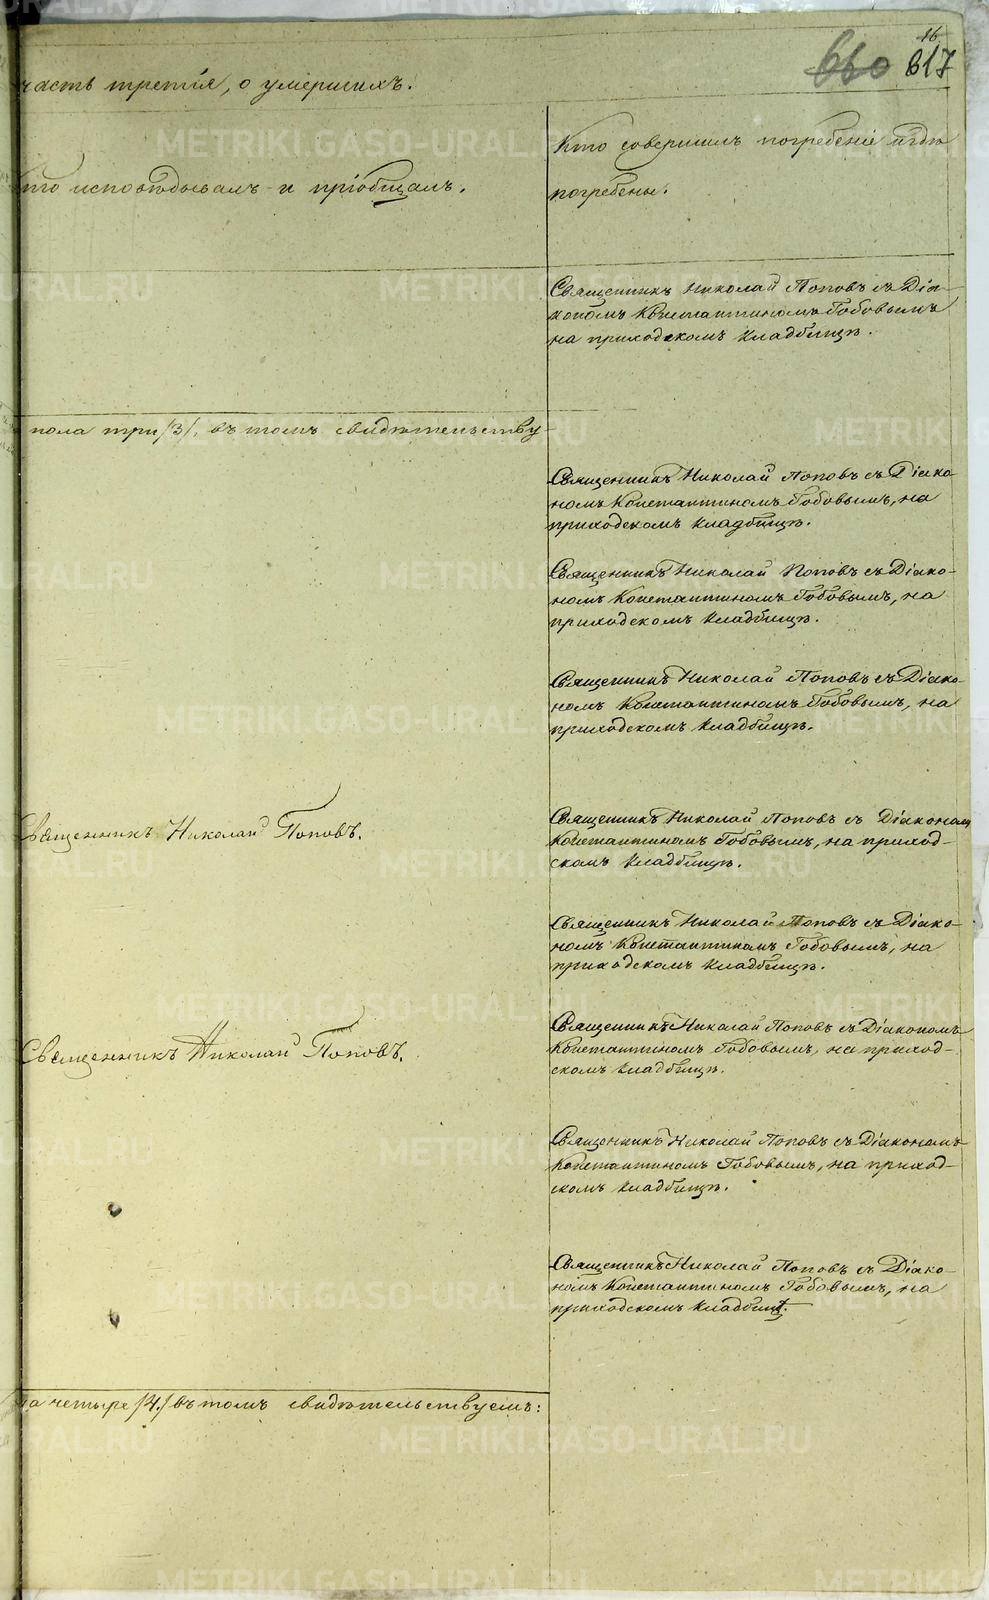 16
660 617
часть третія, о умершихъ.
Кто совершилъ погребеніе и гдѣ
погребены.
кто исповѣдывалъ и пріобщалъ.
Священникъ Николай Поповъ съ Діа-
кономъ Константиномъ Гобовымъ
на приходскомъ кладбищѣ.
пола три /3/. въ томъ свидѣтельству-
Священникъ Николай Поповъ съ Діако-
номъ Константиномъ Гобовымъ, на
приходскомъ кладбищѣ.
Священникъ Николай Поповъ съ Діако-
номъ Константиномъ Гобовымъ, на
приходскомъ кладбищѣ.
Священникъ Николай Поповъ съ Діако-
номъ Константиномъ Гобовымъ, на
приходскомъ кладбищѣ.
Священникъ Николай Поповъ.
Священникъ Николай Поповъ съ Діакономъ
Константиномъ Гобовымъ, на приход-
скомъ кладбищѣ.
Священникъ Николай Поповъ съ Діако-
номъ Константиномъ Гобовымъ, на
приходскомъ кладбищѣ.
Священникъ Николай Поповъ.
Священникъ Николай Поповъ съ Діакономъ
Константиномъ Гобовымъ, на приход-
скомъ кладбищѣ.
Священникъ Николай Поповъ съ Діакономъ
Константиномъ Гобовымъ, на приход-
скомъ кладбищѣ.
Священникъ Николай Поповъ съ Діако-
номъ Константиномъ Гобовымъ, на
приходскомъ кладбищѣ.
ла четыре /4./ въ томъ свидѣтельствуемъ:
METRIKI.GASO-URAL.RU